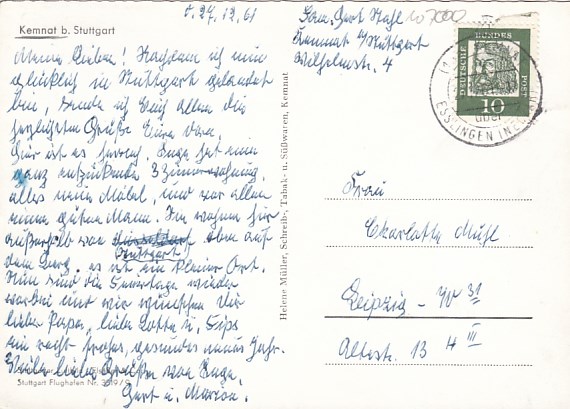 Kemnat b. Stuttgart
d. 27.12.61
Meine Lieben! Nachdem ich nun
glücklich in Stuttgart gelandet
bin, sende ich Euch allen die
herzlichsten Grüße Eure Dora.
Hier ist es herrlich. Inge hat eine
ganz entzückende 3 Zimmerwohnung,
alles neue Möbel, und vor allem
einen guten Mann. Sie wohnen hier
außerhalb von Düsseldorf oben auf
Stuttgart
dem Berg, es ist ein kleiner Ort.
Nun sind die Feiertage wieder
vorbei und wir wünschen Dir
lieber Papa, liebe Lotte u. Fips
ein recht frohes, gesundes neues Jahr.
Viele liebe Grüße von Inge,
Gert u. Marion.
Stuttgart Flughafen Nr.
Helene Müller, Schreib-, Tabak- u. Süßwaren, Kemnat
Gert Stahl
Kemnat b/Stuttgart
Wilhelmstr. 4
DEUTSCHE BUNDESPOST
10
ESSLINGEN
über
Frau
Charlotte Mühl
Leipzig - W 31
Altestr. 13 4 III